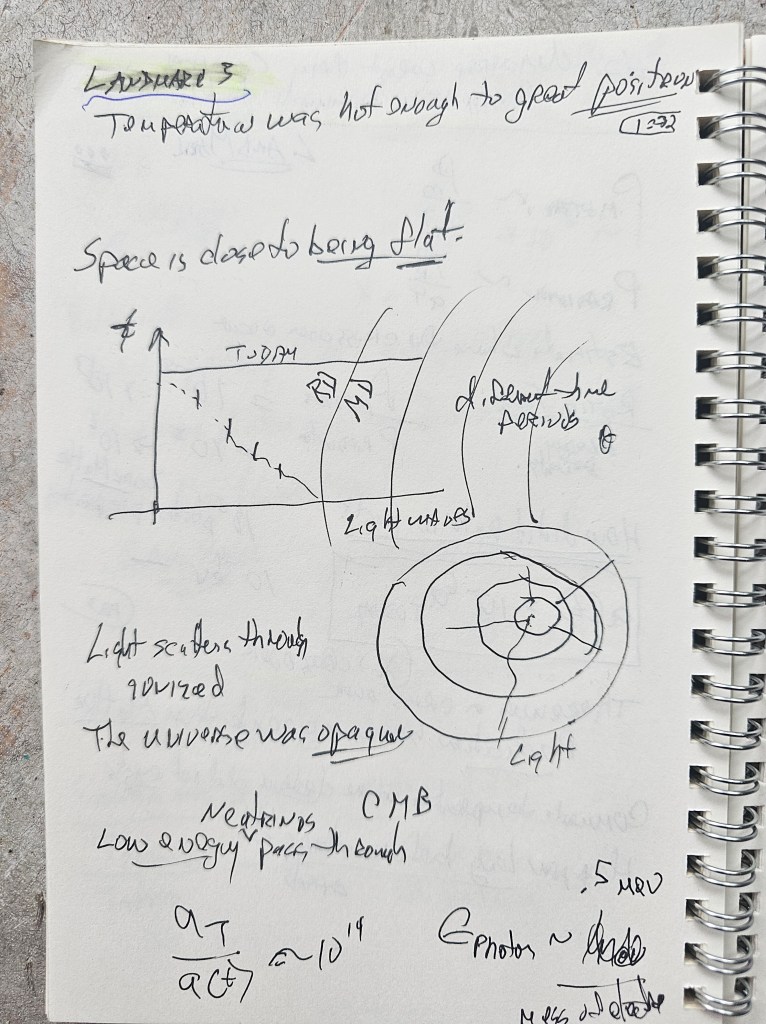 LANDMARK 3
Temperature was hot enough to great positron
1:32
Space is close to being flat.
t
TODAY
RD MD
different time
PERIODS
θ
Light WAVES
Light scatters through
ionized
The universe was opaque
Light
Neutrinos CMB
Low energy pass through
.5 MeV
a_T / a(t) ≈~ 10^14
E photon ~
mass of